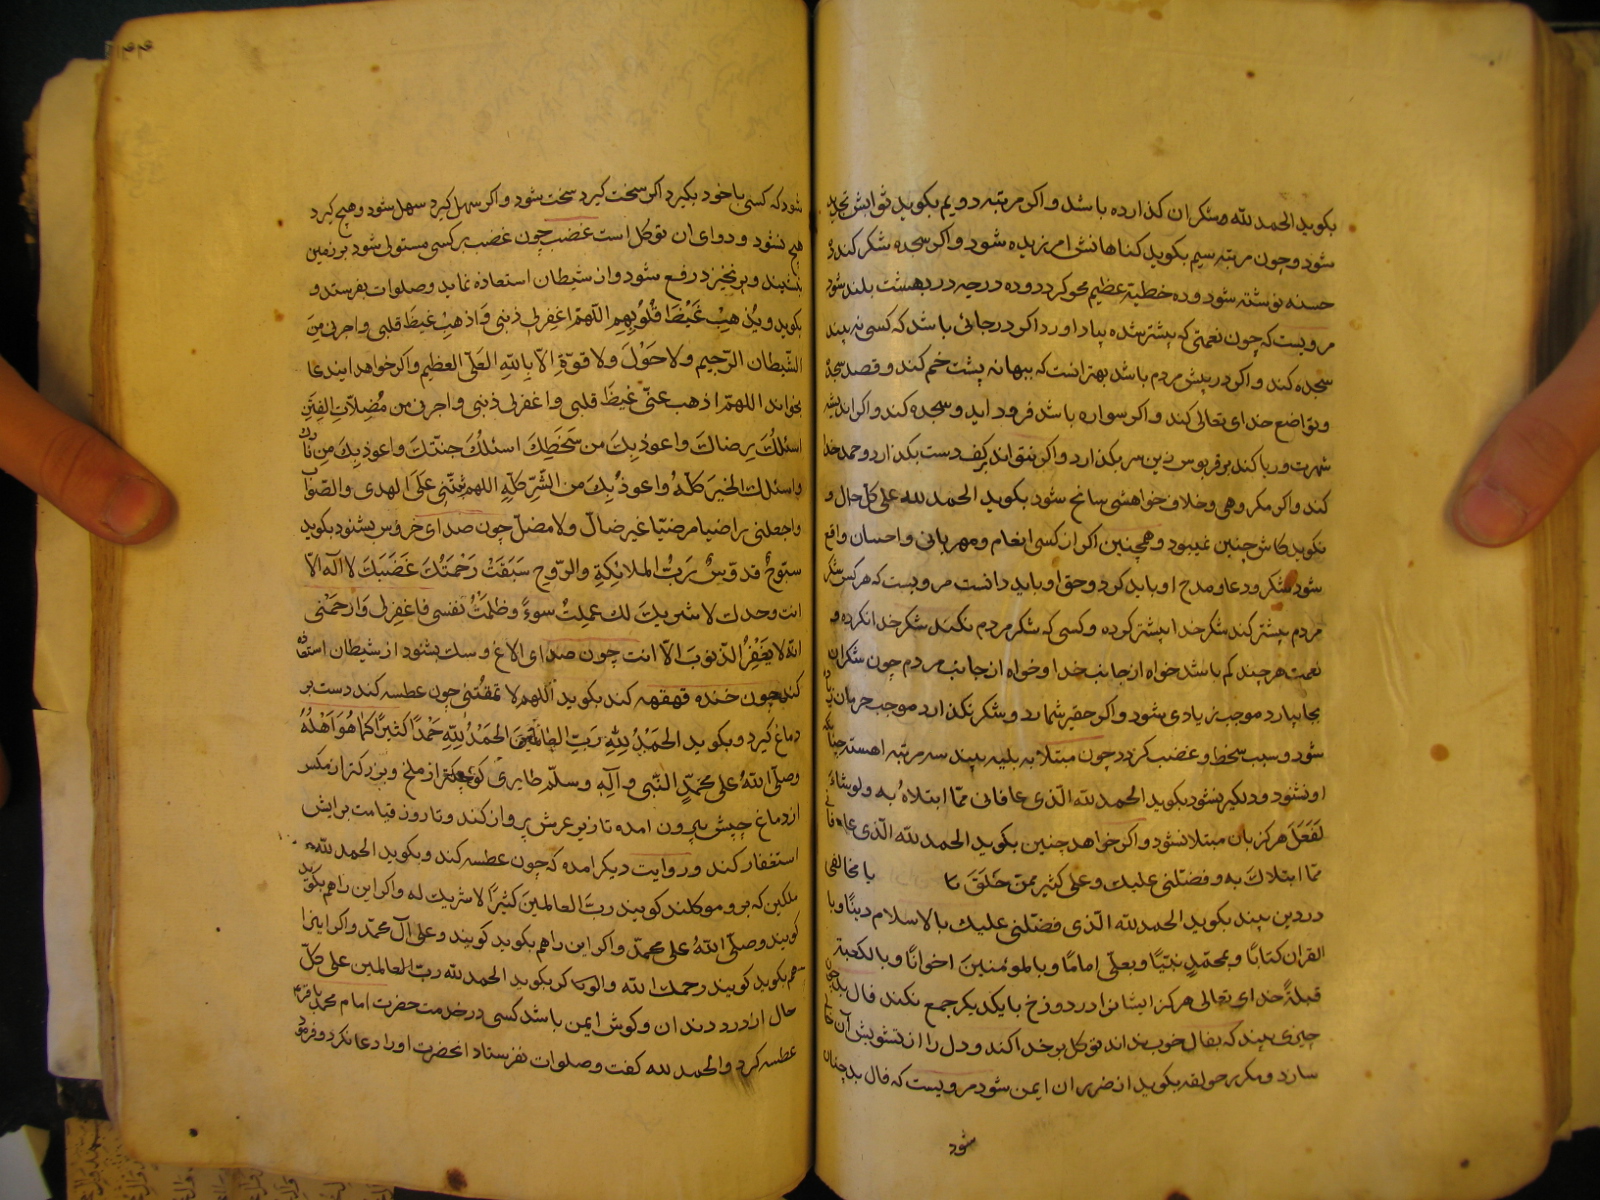 بکوید الحمد لله و شکران کذارده باشد و اکر مرتبه دویم بکوید ثوابش تجدید
شود و چون مرتبه سیم بکوید کناهانش امرزیده شود و اکر سجده شکر کند ده
حسنه نوشته شود و ده خطیئه عظیم محو کردد و ده درجه در بهشت بلند شود
مرویست که چون نعمتی که پیشتر شده بیاد اورد اکر در جائی باشد که کسی نه بیند
سجده کند و اکر در پیش مردم باشد بهتر انست که ببهانه پشت خم کند و قصد سجده
و تواضع خدای تعالی کند و اکر سواره باشد فرود اید و سجده کند و اکر اندیشه
شهرت و ریا کند بر قربوس زین سر بکذارد و اکر نتواند بر کف دست بکذارد و حمد خدا
کند و اکر مکروهی و خلاف خواهشی سانح شود بکوید الحمد لله علی کل حال و
نکوید کاش چنین نمیبود و همچنین اکر از کسی انعام و مهربانی و احسان واقع
شود شکر و دعا و مدح او باید کرد و حق او باید دانست مرویست که هر کس شکر
مردم بیشتر کند شکر خدا بیشتر کرده و کسی که شکر مردم نکند شکر خدا نکرده و
نعمت هر چند کم باشد خواه از جانب خدا و خواه از جانب مردم چون شکران
بجا بیارد موجب زیادی شود و اکر حقیر شمارد و شکر نکذارد موجب حرمان
شود و سبب سخط و غضب کردد چون مبتلا به بلیه بیند سه مرتبه اهسته چنانکه
او نشود و دلکیر نشود بکوید الحمد لله الّذی عافانی ممّا ابتلاهُ به ولو شاءَ
لَفَعَلَ هرکز بان مبتلا نشود و اکر خواهد چنین بکوید الحمد لله الّذی عافانی
ممّا ابتلاكَ به و فضّلنی علیك و علی کثیر ممّن خَلَقَ یا با مخالفی
در دین بیند بکوید الحمد لله الّذی فضّلنی علیك بالاسلام دینًا و با
القران کتابًا و بمحمّدٍ نبیّا و بعلّی امامًا و بالمؤمنین اخوانًا و بالکعبة
قبلةً خدای تعالی هرکز ایشانرا در دوزخ با یکدیکر جمع نکند فال بد چون
چیزی بیند که بفال خوب نداند توکل بر خدا کند و دل را از تشویش آن خالی
سازد و مکرر حولقه بکوید از ضرر ان ایمن شود مرویست که فال بد چنان
شود
۴۴
شود که کسی با خود بکیرد اکر سخت کیرد سخت شود و اکر سهل کیرد سهل شود و هیچ کیرد
هیچ نشود و دوای ان توکل است غضب چون غضب بر کسی مستولی شود بر زمین
بنشیند و برنخیزد رفع شود و از شیطان استعاذه نماید و صلوات بفرستد و
بکوید ویُذهِبْ غَیْظَ قُلُوبِهِم اللّهمّ اغفِر لی ذنبی وَ اذهِبْ غیظَ قلبی واجرنی مِنَ
الشّیطان الرّجیم ولا حَوْلَ ولا قوّةَ الّا بِاللّهِ العَلّی العظیم و اکر خواهد ایندعا
بخواند اللهمّ اذهب عنّی غیظَ قلبی واغفر لی ذنبی واجرنی من مُضِلّاتِ الفِتَنِ
اسئلُكَ رِضاكَ واعوذ بِكَ من سَخَطِكَ اسئلُكَ جنّتكَ واعوذ بِكَ مِن نارك
واسئلك الخیرَ کلَّهُ واعوذُ بِكَ من الشّرِّ کلّهِ اللهم ثبّتنی عَلَی الهدی والصّواب
واجعلنی راضیا مرضیّا غیر ضالّ ولا مضلّ چون صدای خروس بشنود بکوید
سبّوحٌ قدّوسٌ ربُّ الملائِکةِ والرّوحِ سَبَقَتْ رَحْمَتُكَ غَضَبَكَ لا اله الّا
انت وحدك لا شریكَ لك عمِلتُ سوءً وظلمتُ نفسی فاغفِر لی وَارحَمْنی
انّه لا یَغْفِرُ الذّنوبَ الّا انت چون صدای الاغ و سك بشنود از شیطان استعاذه
کند چون خنده قهقهه کند بکوید اللهم لا تمقُتنی چون عطسه کند دست بر
دماغ کیرد و بکوید الحَمْدُ للّهِ رَبّ العالمین الحَمْدُ لِلّهِ حَمْدًا کثیرًا کما هُوَ اَهلُهُ
وصلّی اللّهُ علی محمّدٍ النّبی و آلِهِ وسلّم طایری کوچکتر از ملخ و بزرکتر از مکس
از دماغ چپش بیرون امده تا زیر عرش پرواز کند و تا روز قیامت برایش
استغفار کند و روایت دیکر امده که چون عطسه کند و بکوید الحمد للّه
ملکین که بر و موکلند کویند ربّ العالمینَ کثیرًا لا شریك له و اکر این راهم بکوید
کویند وصلّی اللّهُ علی محمّد و اکر این راهم بکوید کویند وعلی آل محمّد و اکر اینرا
هم بکوید کویند رحمك اللّه بکوید الحمد للّه ربّ العالمین علی کلّ
حال از درد دندان و کوش ایمن باشد کسی در خدمت حضرت امام محمد باقر
عطسه کرد و الحمد لله کفت و صلوات نفرستاد انحضرت او را دعا نکرد و فرمود